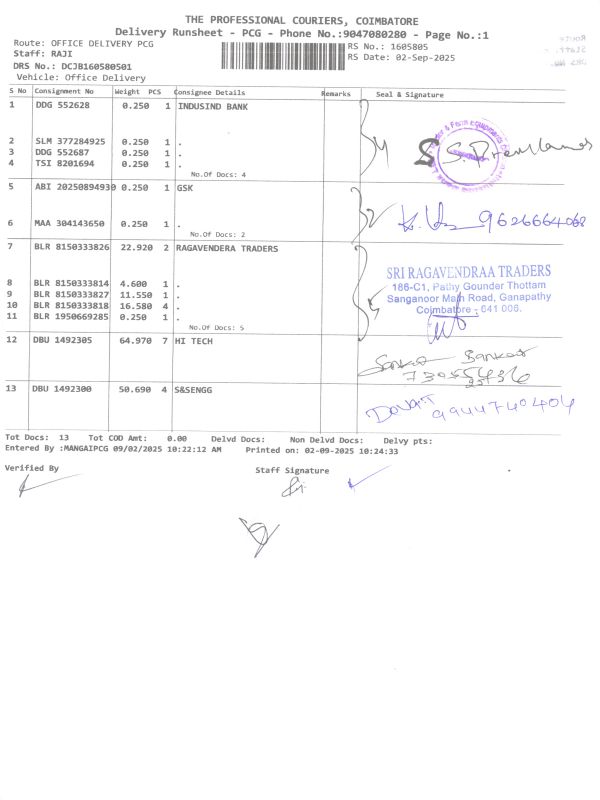 THE PROFESSIONAL COURIERS, COIMBATORE
Delivery Runsheet - PCG - Phone No.:9047080280 - Page No.:1
Route: OFFICE DELIVERY PCG
Staff: RAJI
RS No.: 1605805
RS Date: 02-Sep-2025
DRS No.: DCJB160580501
Vehicle: Office Delivery
S No Consignment No Weight PCS Consignee Details Remarks Seal & Signature
1 DDG 552628 0.250 1 INDUSIND BANK
2 SLM 377284925 0.250 1 .
3 DDG 552687 0.250 1 .
4 TSI 8201694 0.250 1 .
No.Of Docs: 4
5 ABI 20250894930 0.250 1 GSK
6 MAA 304143650 0.250 1 .
No.Of Docs: 2
9626664068
7 BLR 8150333826 22.920 2 RAGAVENDERA TRADERS
SRI RAGAVENDRAA TRADERS
186-C1, Pathy Gounder Thottam
Sanganoor Main Road, Ganapathy
Coimbatore - 641 006.
8 BLR 8150333814 4.600 1 .
9 BLR 8150333827 11.550 1 .
10 BLR 8150333818 16.580 4 .
11 BLR 1950669285 0.250 1 .
No.Of Docs: 5
12 DBU 1492305 64.970 7 HI TECH
13 DBU 1492300 50.690 4 S&SENGG
Tot Docs: 13 Tot COD Amt: 0.00 Delvd Docs: Non Delvd Docs: Delvy pts:
Entered By :MANGAIPCG 09/02/2025 10:22:12 AM Printed on: 02-09-2025 10:24:33
Verified By
Staff Signature